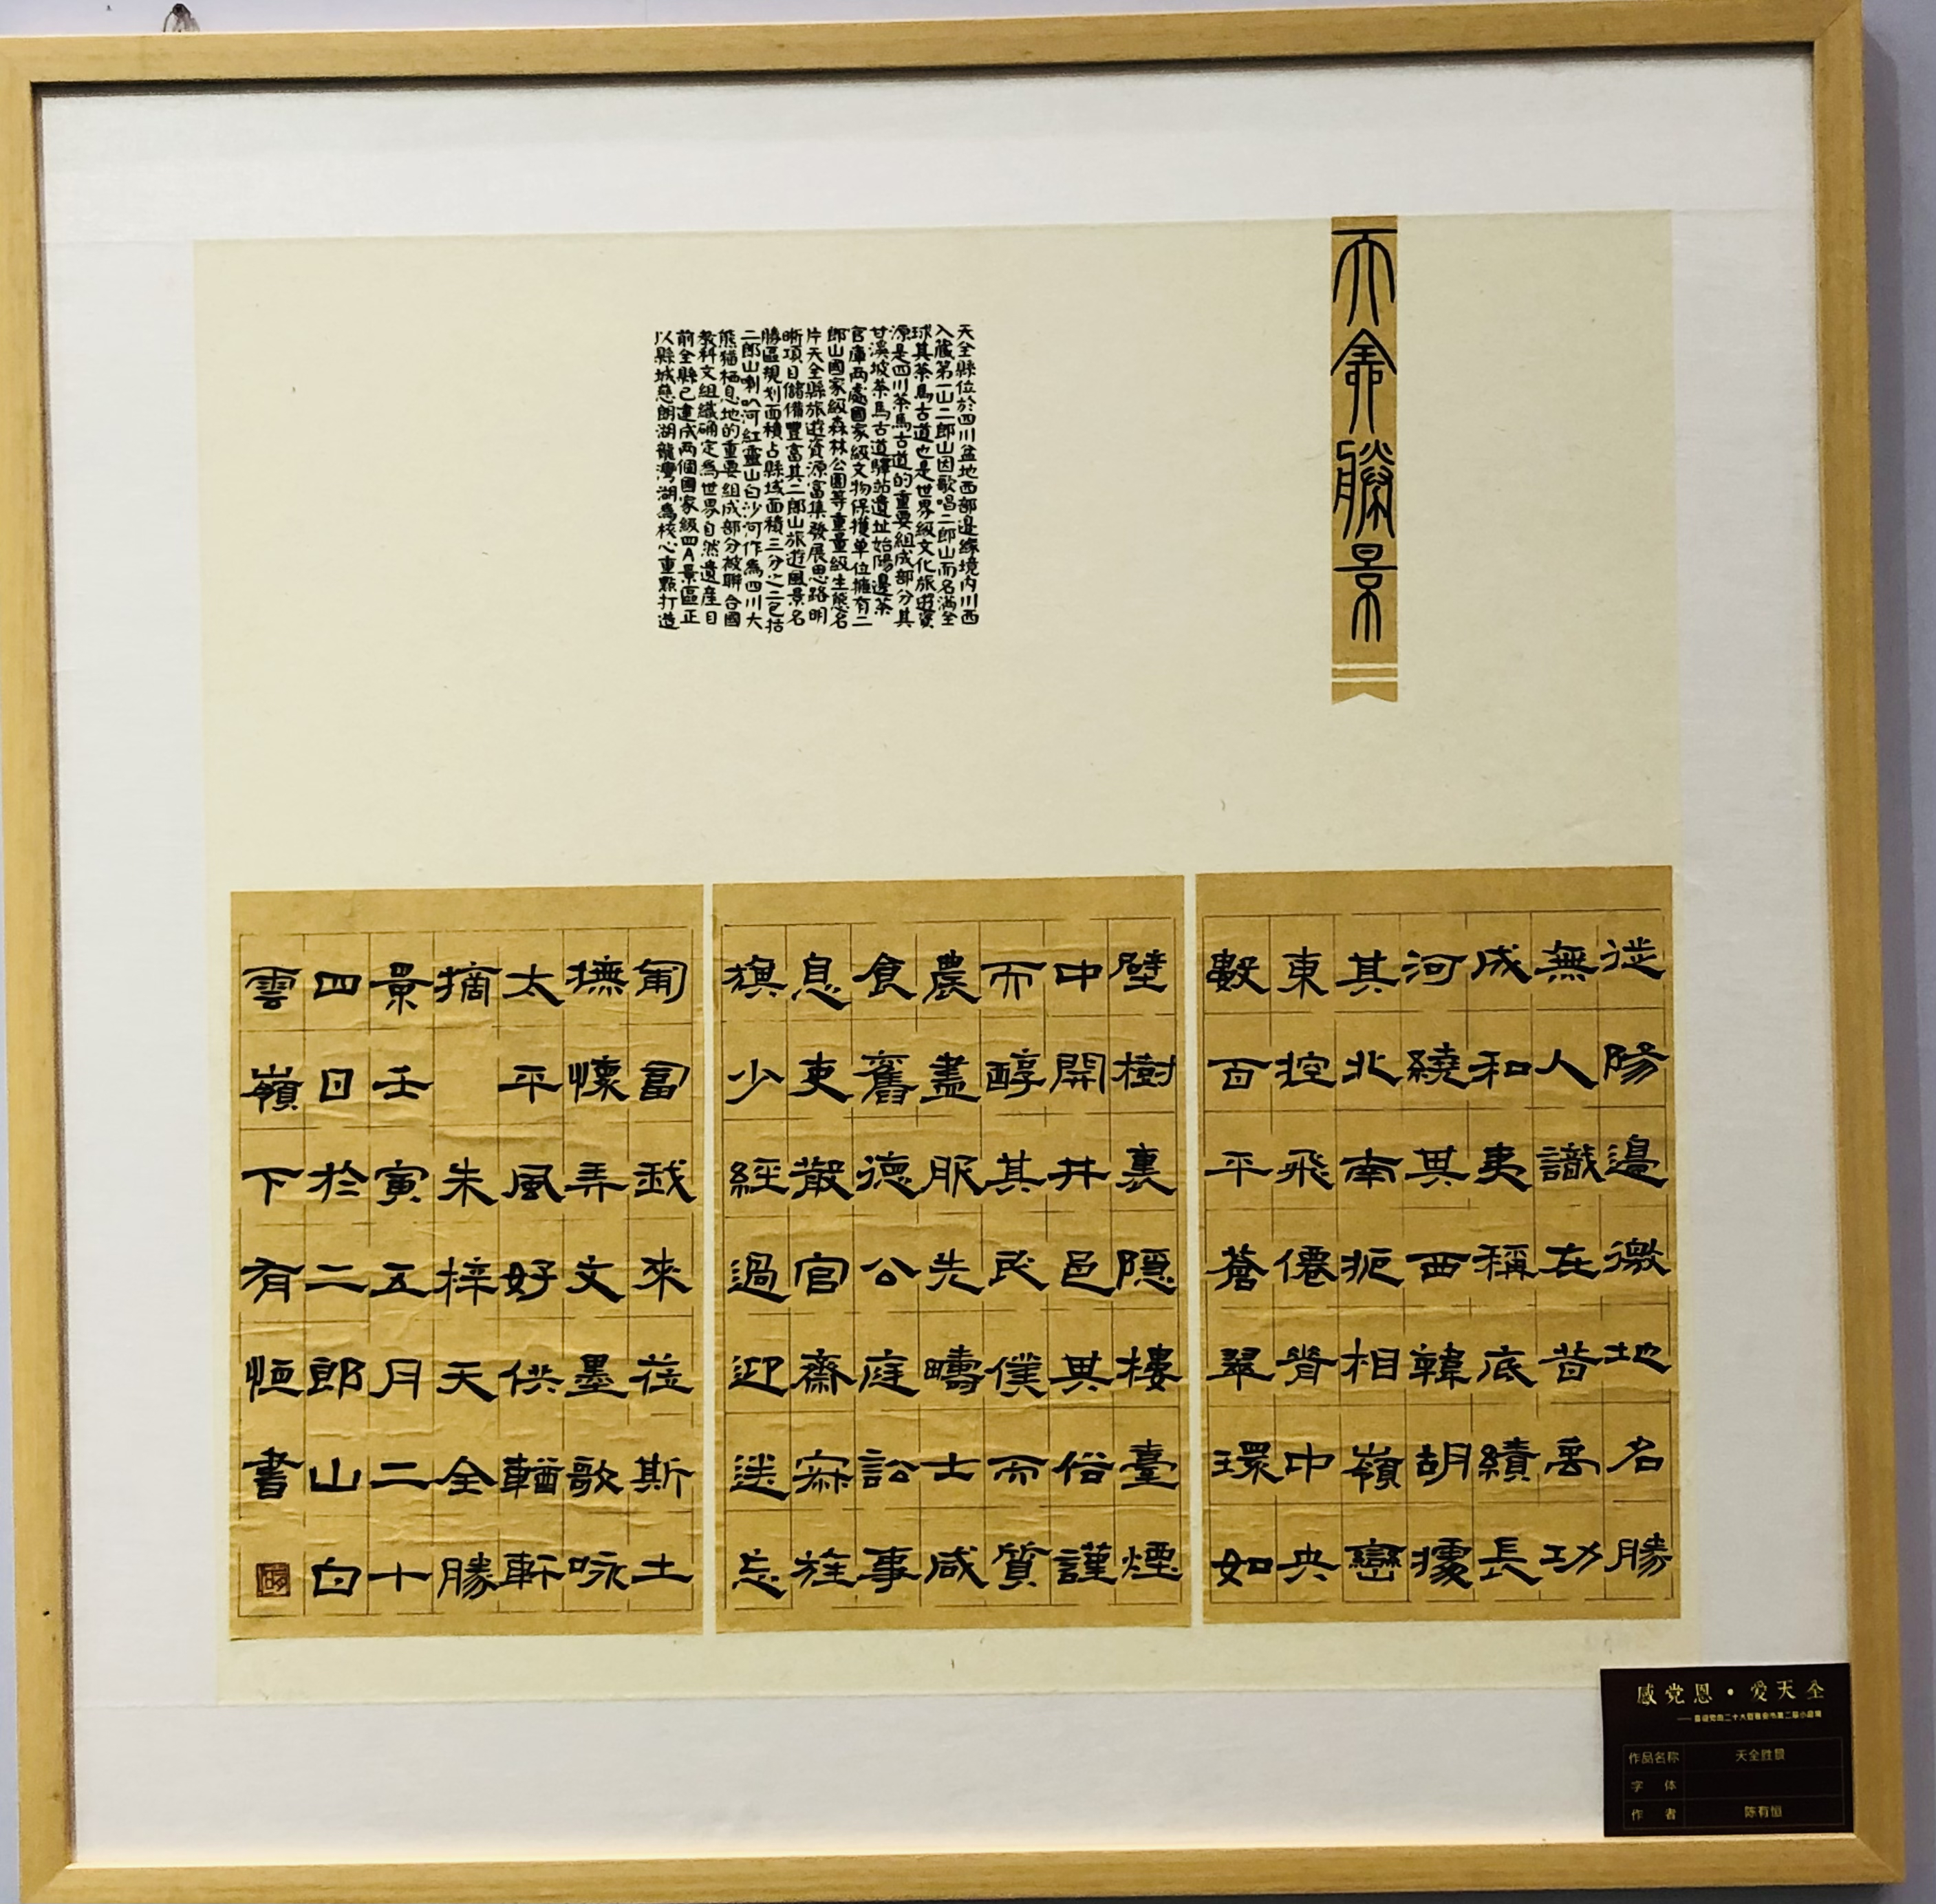 天全勝景
天全縣位於四川盆地西部邊緣境内川西
入藏第一山二郎山因歌唱二郎山而名滿全
球其茶馬古道也是世界級文化旅遊資
源是四川茶馬古道的重要組成部分其
甘溪坡茶馬古道驛站遺址始陽邊茶
官庫两處國家級文物保護单位擁有二
郎山國家級森林公園等重量級生態名
片天全縣旅遊資源富集發展思路明
晰項目儲備豐富其二郎山旅遊風景名
勝區規划面積占縣域面積三分之二包括
二郎山喇叭河紅靈山白沙河作為四川大
熊猫栖息地的重要組成部分被聯合國
教科文組織确定為世界自然遺産目
前全縣已建成两個國家級四A景區正
以縣城慈朗湖龍灣湖為核心重點打造
徙陽邊徼地名勝
無人識在昔禹功
成和夷稱底績長
河繞其西韓胡據
其北南扼相嶺巒
東控飛僊脊中央
數百平蒼翠環如
壁樹裏隱樓臺煙
中開井邑其俗謹
而醇其民僕而質
農盡服先疇士咸
食舊德公庭訟事
息吏散官齋寂旌
旗少經過迎送忘
匍匐我來蒞斯土
撫懷弄文墨歌咏
太平風好供輶軒
摘 朱梓天全勝
景壬寅五月二十
四日於二郎山白
雲嶺下有恒書
感党恩·爱天全
作品名称 天全胜景
字体
作者 陈有恒